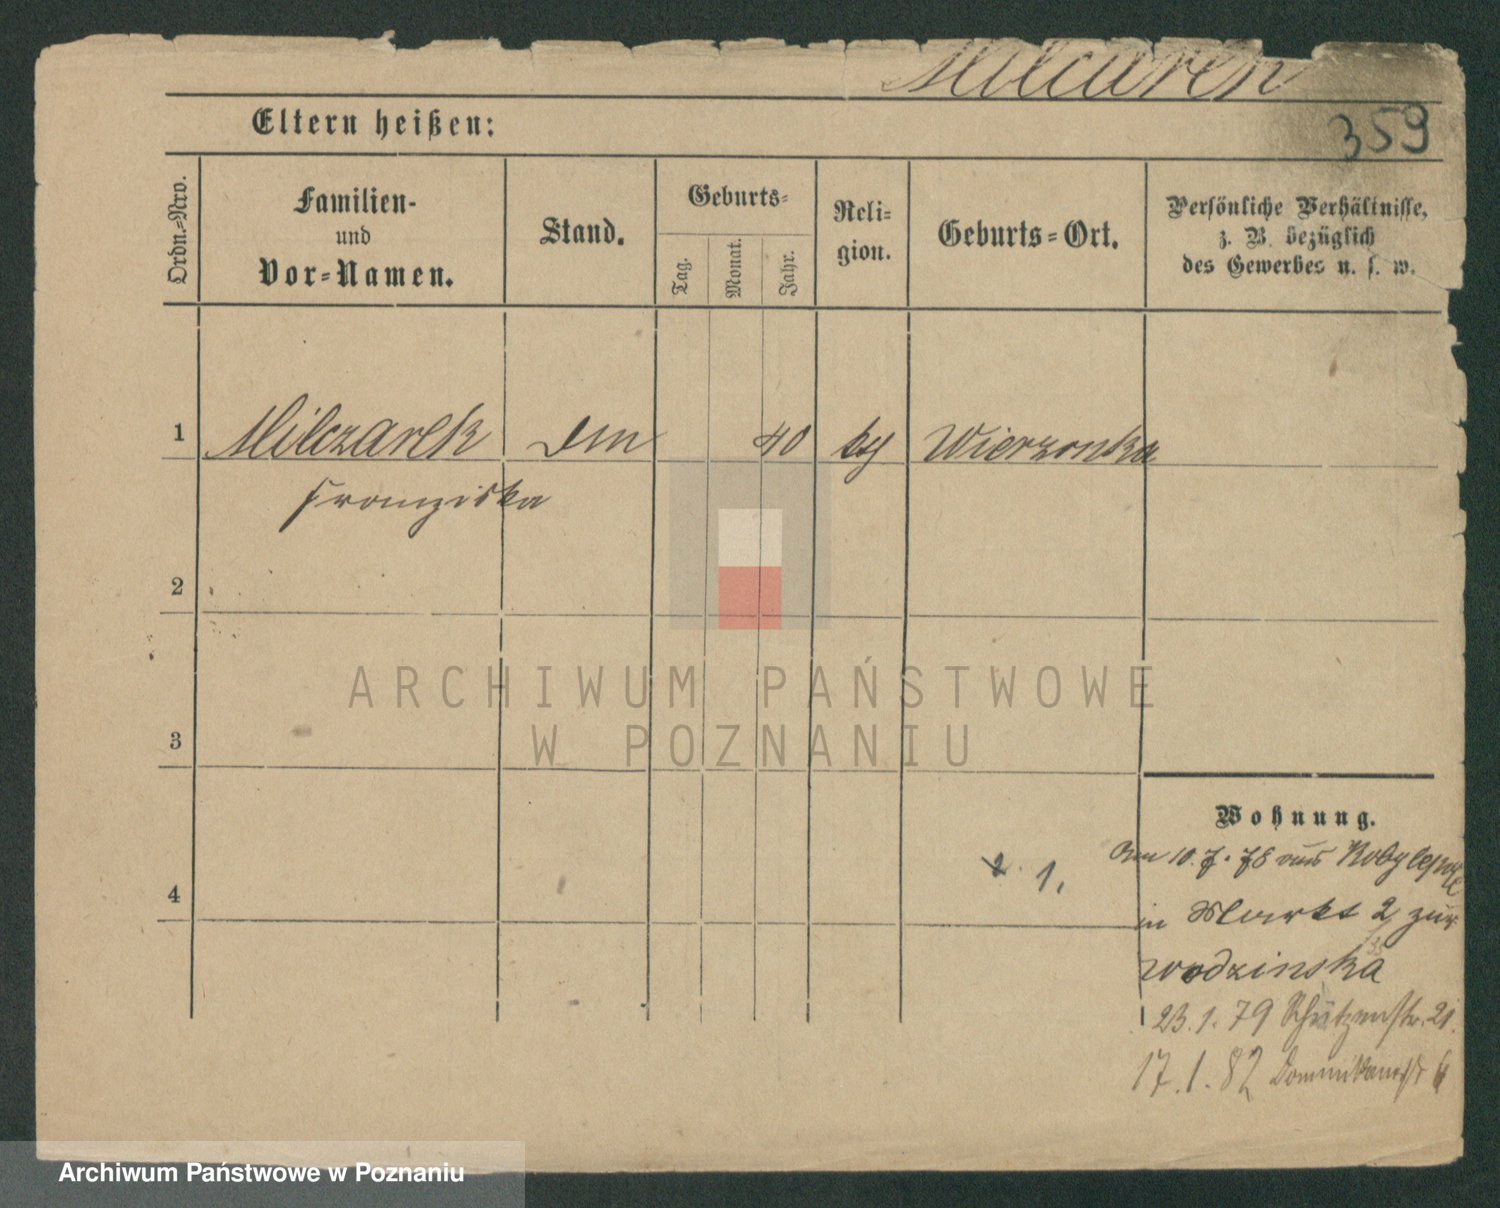 Milczarek
359
Eltern heißen:
Ordn.-Nro.
Familien-
und
Vor-Namen.
Stand.
Geburts-
Tag.
Monat.
Jahr.
Reli-
gion.
Geburts-Ort.
Persönliche Verhältnisse,
z. B. bezüglich
des Gewerbes u. s. w.
1 Milczarek 40 Wierzonka
Franziska
2
ARCHIWUM PAŃSTWOWE
W POZNANIU
3
Wohnung.
10. 7. 78 aus
2. 1.
4
in Markt 2 zur
wodzinska
23. 1. 79 Schützenstr. 21.
17. 1. 82 6
Archiwum Państwowe w Poznaniu